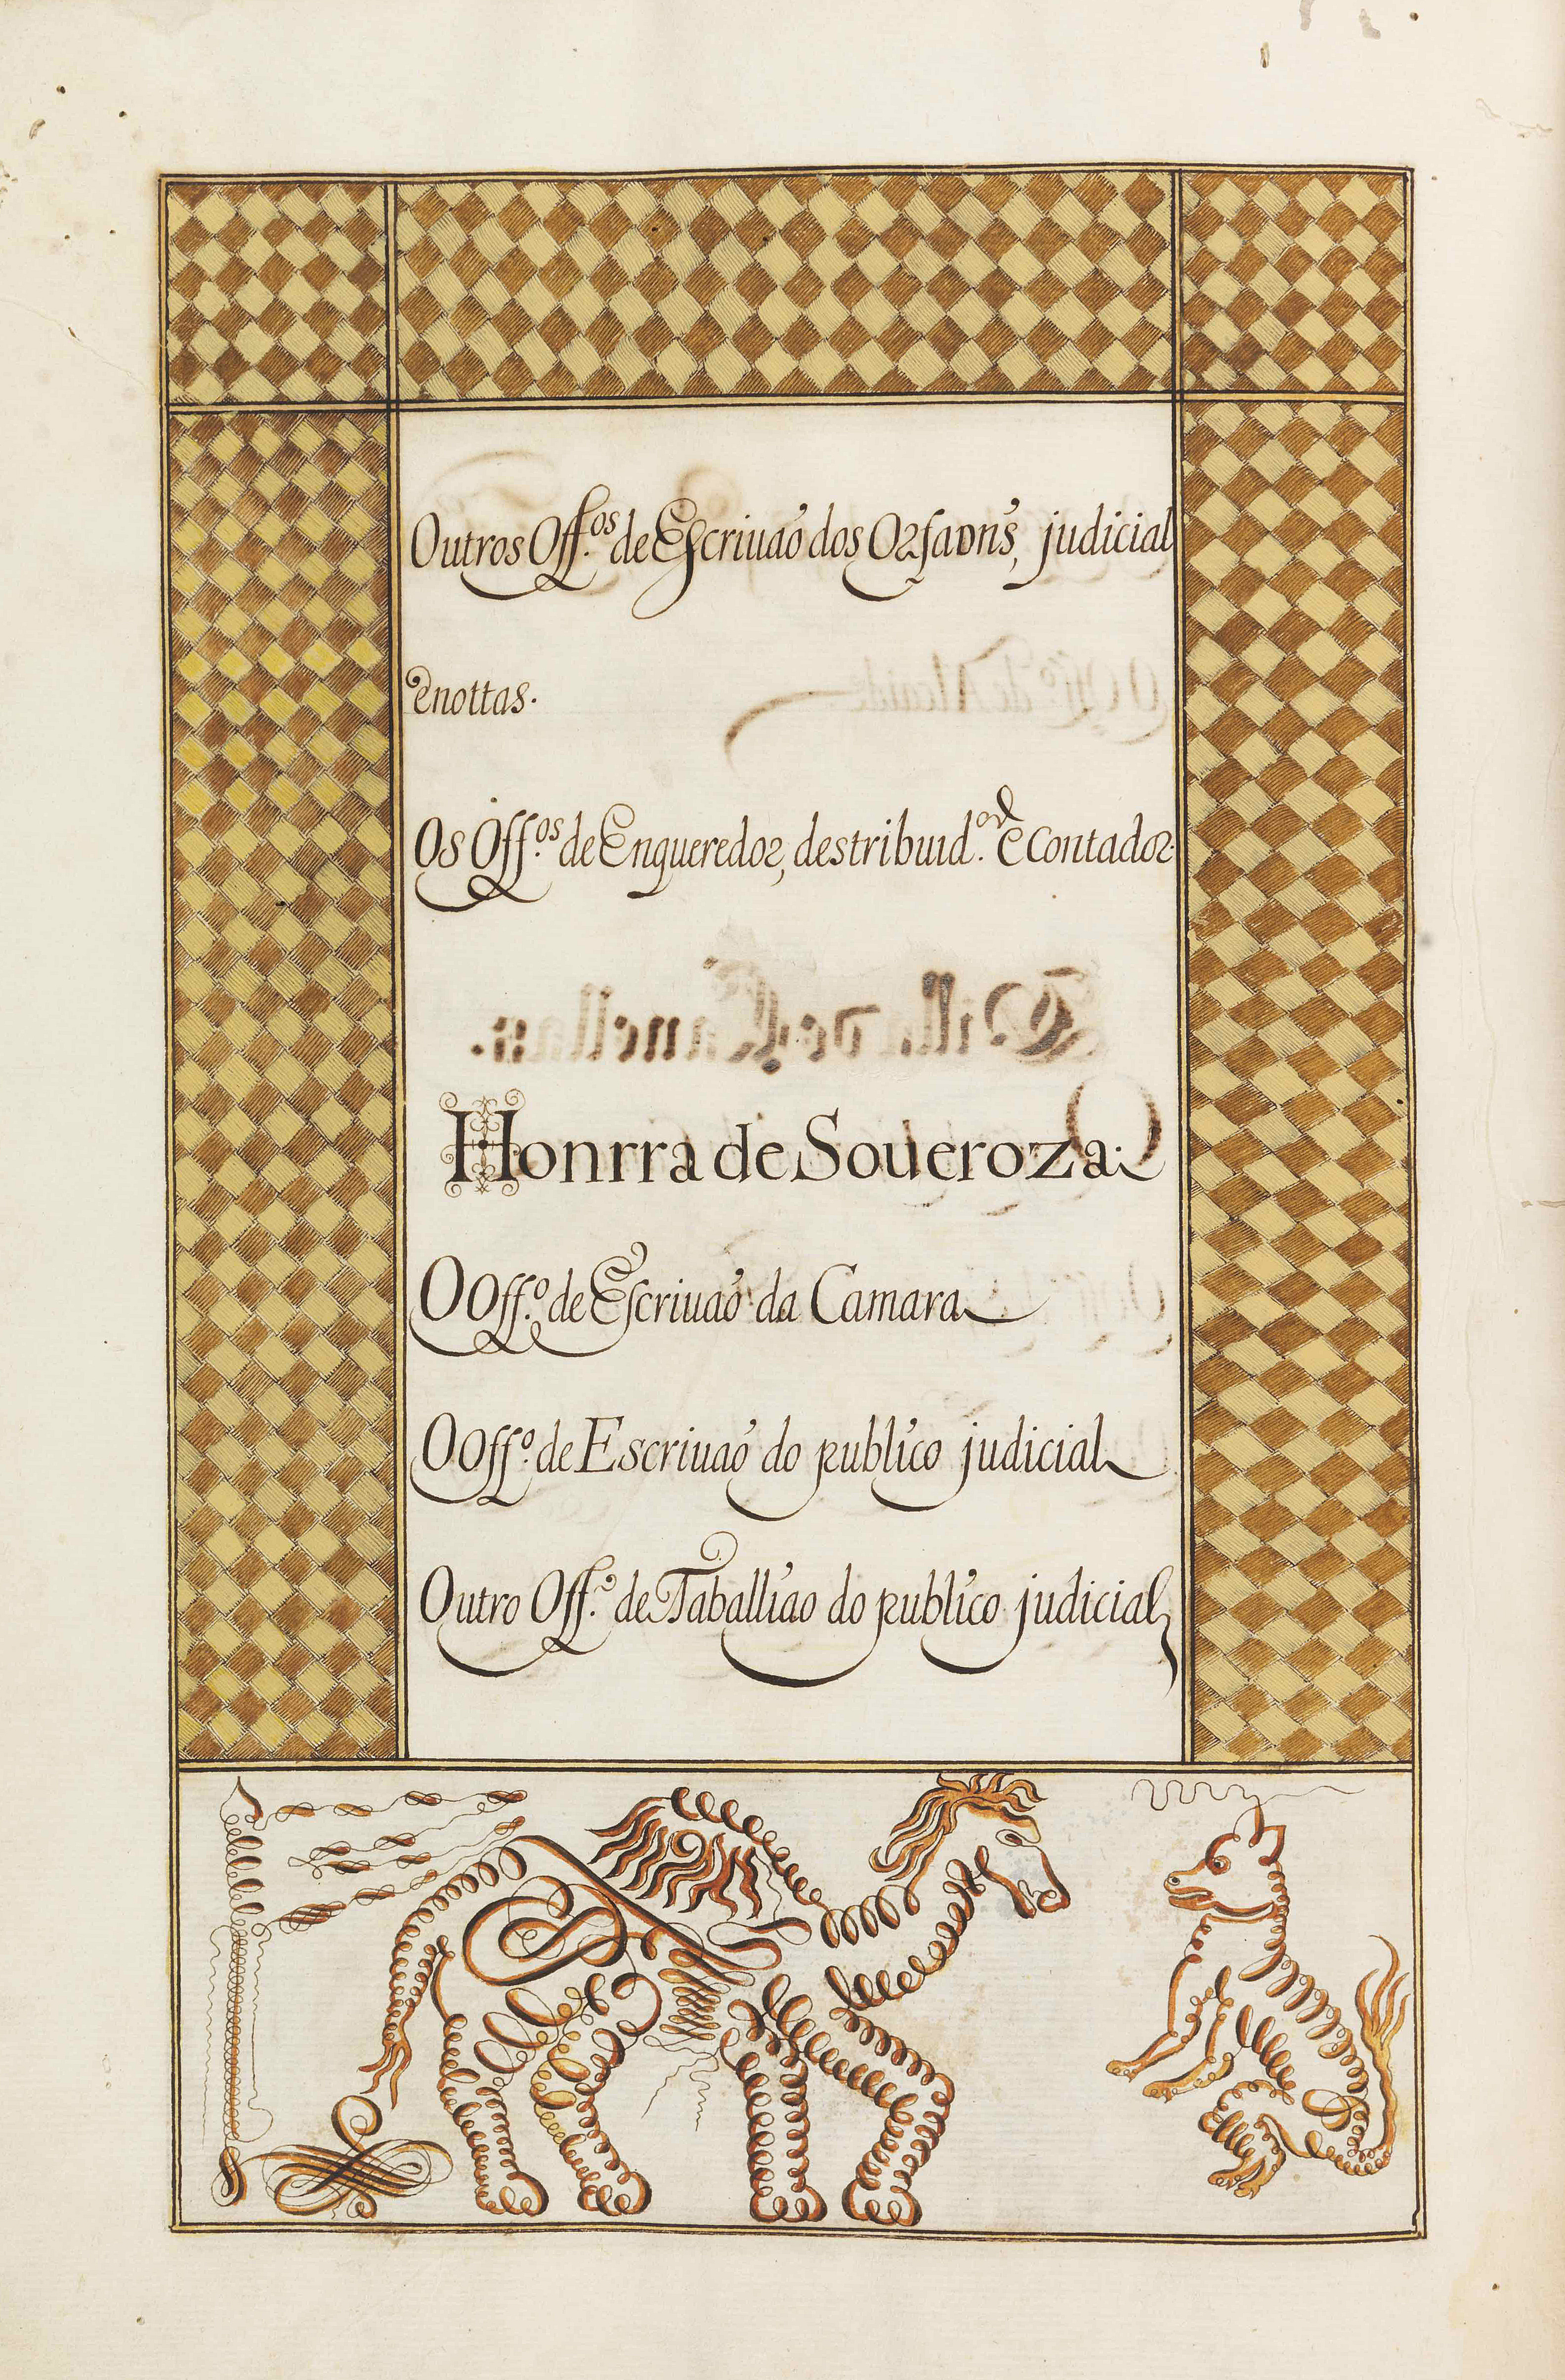 Outros Off.ᵒˢ de Escriuaó dos Orfaons, judicial
enottas.
Os Off.ᵒˢ de Enqueredor, destribuid.ᵒʳ e Contador.
Honrra de Soueroza.
O Off.º de Escriuaó da Camara
O Off.º de Escriuaó do publico judicial
Outro Off.º de Taballiao do publico judicial